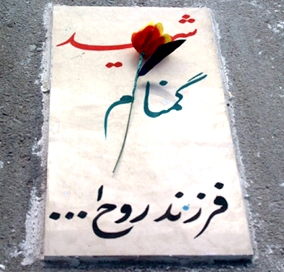 شهید
گمنام
فرزند روح ا...